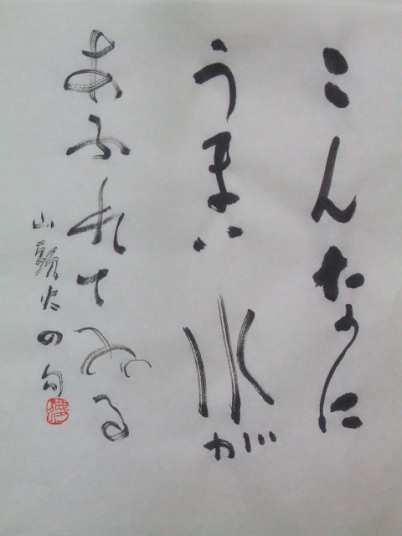 こんなに
うまい水が
あふれてゐる
山頭火の句